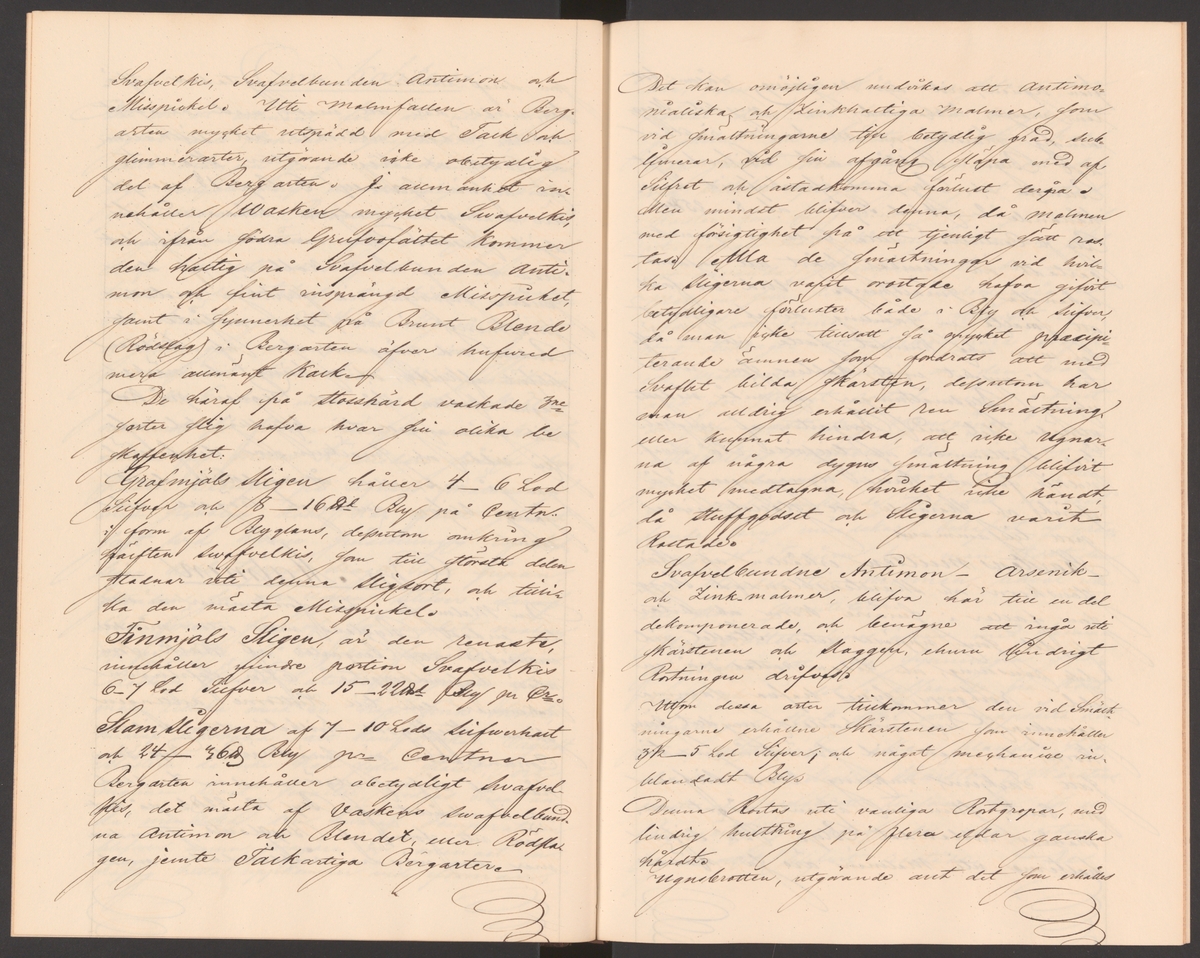 Svafvelkis, Svafvelbunden Antimon och
Misspickel. Uti Malmfallen är Berg-
arten mycket utspädd med Talk och
glimmerarter, utgörande icke obetydlig
del af Bergarten. I allmänhet in-
nehåller Wasken mycket Swafvelkis,
och ifrån södra Grufvofältet kommer
den haltig på Svafvelbunden Anti-
mon och fint insprängd Misspickel,
samt i synnerhet på Brunt Blende
(Rödslag) i Bergarten äfver hufvud
mera allmänt Kalk.
De häraf på Stosshärd vaskade 3ne
sorter slig hafva hvar sin olika be
skaffenhet.
Grofmjöls Sligen håller 4 - 6 Lod
Silfver och 8 - 16 Bly på Centn.
i form af Blyglans, dessutom omkring
hälften swafvelkis, som till största delen
stadnar uti denna Sligsort, och tilli-
ka den mästa Misspickel.
Finmjöls Sligen, är den renaste,
innehåller mindre portion Svafvelkis
6-7 Lod Silfver och 15 - 22 Bly pr Cr.
Slam Sligerna af 7 - 10 Lods Silfwerhalt
och 24 - 36 Bly pr Centner
Bergarten innehåller obetydligt swafvel
kis, det mästa af Vaskens swafvelbund-
na Antimon och Blendet, eller Rödsla-
gen, jemte Talkartiga Bergarter.
Det kan omöjligen undvikas att Antimo-
nialiska och Zinkhaltiga Malmer, som
vid smältningarne till betydlig grad, sub
limerar, vid sin afgång släpa med af
Silfret och åstadkomma förlust derpå.
Men mindst blifver denna, då malmen
med försigtighet på ett tjenligt sätt ros-
tas. Alla de smältningar vid hvil-
ka Sligerna varit orostade hafva gifvit
betydligare förluster både i Bly och Silfver,
då man icke tillsatt så mycket præcipi
terande ämnen som fordrats att med
Svaflet bilda Skärsten, dessutom har
man aldrig erhållit ren Smältning,
eller kunnat hindra, att icke ugnar-
na af några dygns smältning blifvit
mycket medtagna, hvilket icke händt,
då stuffgodset och Sligerna varit
Rostade.
Svafvelbundne Antimon - Arsenik -
och Zink-malmer, blifva här till en del
dekomponerade, och benägne att ingå uti
skärstenen och Slaggen, ehuru lindrigt
Rostningen drifves.
Utom dessa arter tillkommer den vid Smält
ningarne erhållne Skärstenen som innehåller
3½ - 5 Lod Silfver, och något mechaniskt in-
blandadt Bly.
Denna Rostas uti vanliga Rostgropar, med
lindrig hettning på flera eldar ganska
hårdt.
Ugnsbrotten, utgörande allt det som erhålles